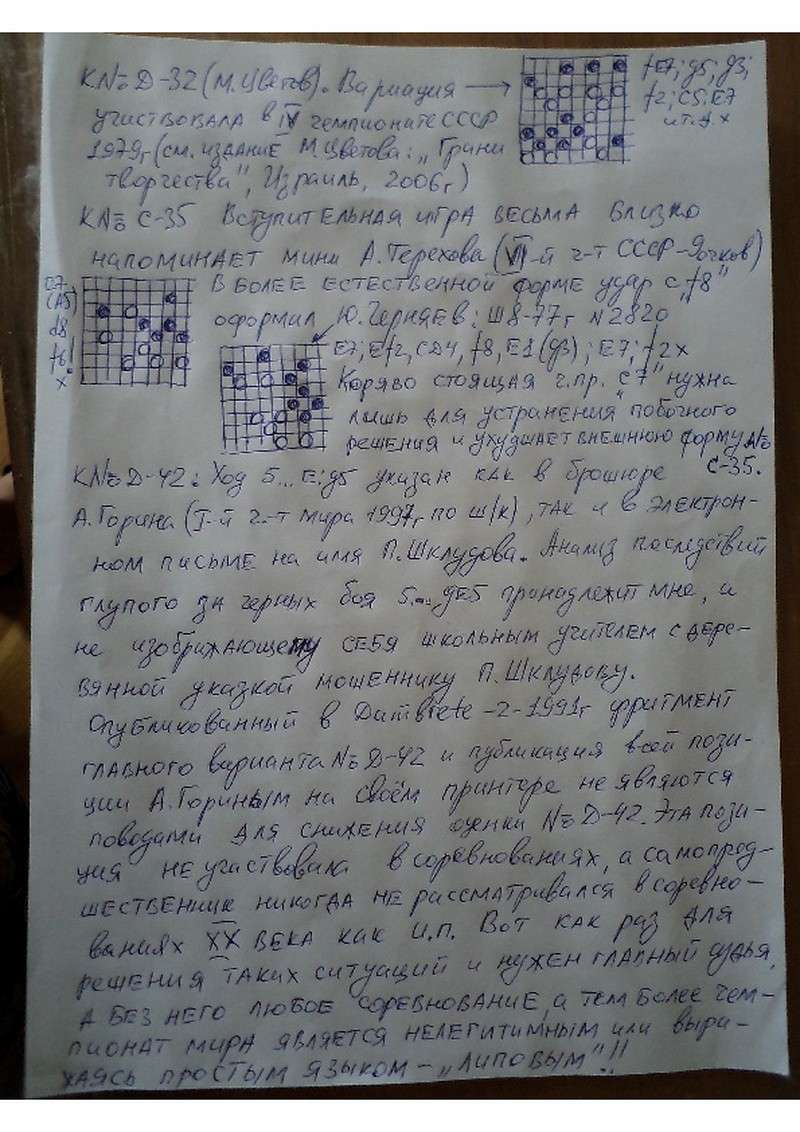 К № D-32 (М. Цветов). Вариация →
участвовала в IV чемпионате СССР
1979г (см. издание М. Цветова: „Грани
творчества", Израиль, 2006г)
fE7; g5; g3;
f2; C5: E7
и т.д. х
К № С-35 Вступительная игра весьма близко
напоминает мини А. Терехова (VII-й ч-т СССР-Яочков)
C7→
(A5)
d8
f6!
х
в более естественной форме удар с „f8"
оформил Ю. Черняев: Ш 8-77г N 2820
E7; Ef2, CD4, f8, E1 (g3); E7; f2x
Коряво стоящая ч.пр. „c7" нужна
лишь для устранения побочного
решения и ухудшает внешнюю форму №
С-35.
К № D-42: Ход 5... Е:g5 указан как в брошюре
А. Горина (I-й ч-т мира 1997г по ш/к), так и в электрон-
ном письме на имя П. Шклудова. Анализ последствий
глупого за черных боя 5... gE5 принадлежит мне, а
не изображающему себя школьным учителем с дере-
вянной указкой мошеннику П. Шклудову.
Опубликованный в Dambrete-2-1991г фрагмент
главного варианта № D-42 и публикация всей пози-
ции А. Гориным на своём принтере не являются
поводами для снижения оценки № D-42. Эта пози-
ция не участвовала в соревнованиях, а самопред-
шественник никогда не рассматривался в соревно-
ваниях XX века как И.П. Вот как раз для
решения таких ситуаций и нужен главный судья,
а без него любое соревнование, а тем более чем-
пионат мира является нелегитимным или выра-
жаясь простым языком - „липовым"!!